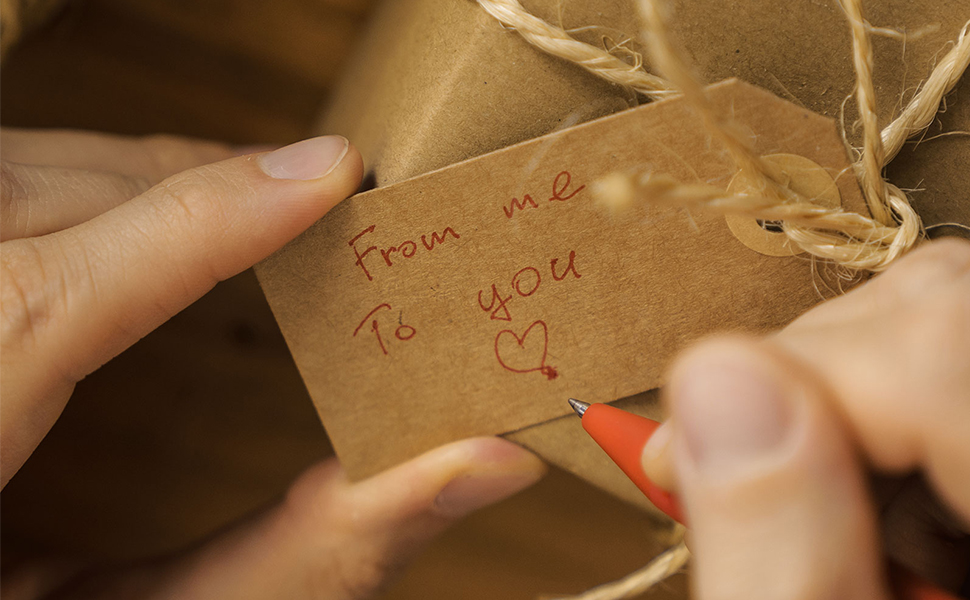 From me
To you